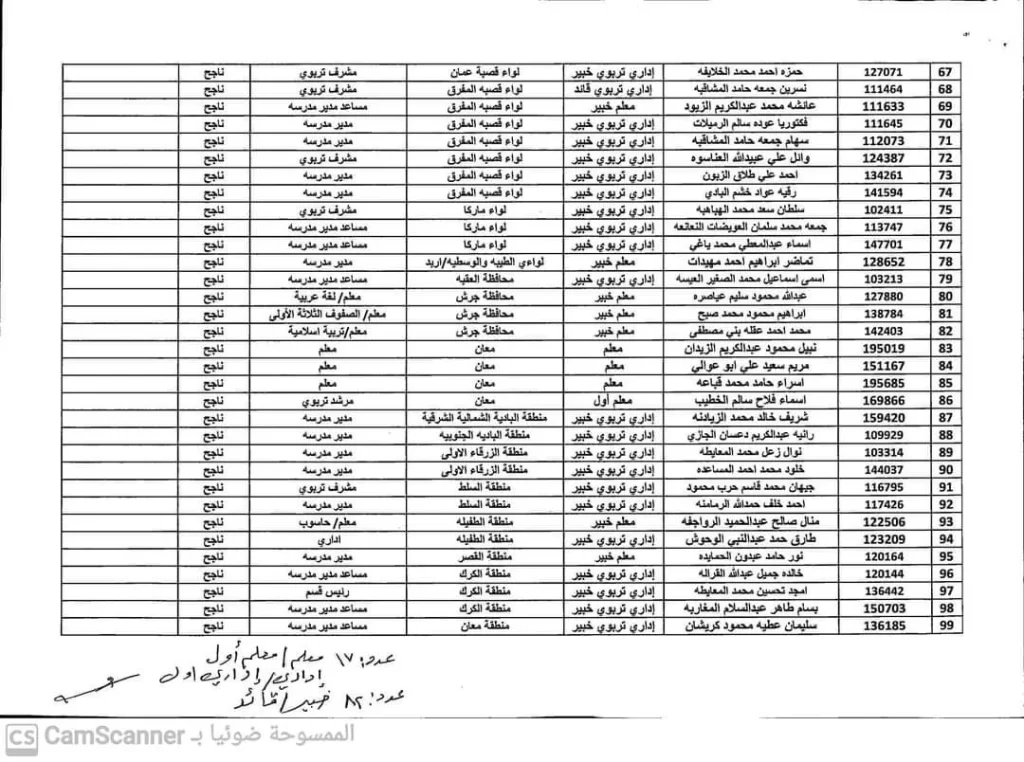 67 127071 حمزه احمد محمد الخلايفه إداري تربوي خبير لواء قصبة عمان مشرف تربوي ناجح
68 111464 نسرين جمعه حامد المشاقبه إداري تربوي قائد لواء قصبه المفرق مشرف تربوي ناجح
69 111633 عائشه محمد عبدالكريم الزيود معلم خبير لواء قصبه المفرق مساعد مدير مدرسه ناجح
70 111645 فكتوريا عوده سالم الرميلات إداري تربوي خبير لواء قصبه المفرق مدير مدرسه ناجح
71 112073 سهام جمعه حامد المشاقبه إداري تربوي خبير لواء قصبه المفرق مدير مدرسه ناجح
72 124387 وائل علي عبيدالله العناسوه إداري تربوي خبير لواء قصبه المفرق مشرف تربوي ناجح
73 134261 احمد علي طلاق الزبون إداري تربوي خبير لواء قصبه المفرق مدير مدرسه ناجح
74 141594 رقيه عواد خشم البادي إداري تربوي خبير لواء قصبه المفرق مدير مدرسه ناجح
75 102411 سلطان سعد محمد الهباهبه إداري تربوي خبير لواء ماركا مشرف تربوي ناجح
76 113747 جمعه محمد سلمان العويضات النعانعه إداري تربوي خبير لواء ماركا مساعد مدير مدرسه ناجح
77 147701 اسماء عبدالمعطي محمد ياغي إداري تربوي خبير لواء ماركا مساعد مدير مدرسه ناجح
78 128652 تماضر ابراهيم احمد مهيدات معلم خبير لواءي الطيبه والوسطيه/اربد مدير مدرسه ناجح
79 103213 اسمى اسماعيل محمد الصغير العيسه إداري تربوي خبير محافظة العقبه مساعد مدير مدرسه ناجح
80 127880 عبدالله محمود سليم عياصره معلم خبير محافظة جرش معلم/ لغة عربية ناجح
81 138784 ابراهيم محمود محمد صبح معلم خبير محافظة جرش معلم/ الصفوف الثلاثة الأولى ناجح
82 142403 محمد احمد عقله بني مصطفى معلم خبير محافظة جرش معلم/تربية اسلامية ناجح
83 195019 نبيل محمود عبدالكريم الزيدان معلم معان معلم ناجح
84 151167 مريم سعيد علي ابو عوالي معلم معان معلم ناجح
85 195685 اسراء حامد محمد قباعه معلم معان معلم ناجح
86 169866 اسماء فلاح سالم الخطيب معلم أول معان مرشد تربوي ناجح
87 159420 شريف خالد محمد الزيادنه إداري تربوي خبير منطقة البادية الشمالية الشرقية مدير مدرسه ناجح
88 109929 رانيه عبدالكريم دعسان الجازي إداري تربوي خبير منطقة الباديه الجنوبيه مدير مدرسه ناجح
89 103314 نوال زعل محمد المعايطه إداري تربوي خبير منطقة الزرقاء الاولى مدير مدرسه ناجح
90 144037 خلود محمد احمد المساعده إداري تربوي خبير منطقة الزرقاء الاولى مدير مدرسه ناجح
91 116795 جيهان محمد قاسم حرب محمود إداري تربوي خبير منطقة السلط مشرف تربوي ناجح
92 117426 احمد خلف حمدالله الرمامنه إداري تربوي خبير منطقة السلط مدير مدرسه ناجح
93 122506 منال صالح عبدالحميد الرواجفه معلم خبير منطقة الطفيله معلم/ حاسوب ناجح
94 123209 طارق حمد عبدالنبي الوحوش إداري تربوي خبير منطقة الطفيله اداري ناجح
95 120164 نور حامد عبدون الحمايده معلم خبير منطقة القصر مدير مدرسه ناجح
96 120144 خالده جميل عبدالله القراله إداري تربوي خبير منطقة الكرك مساعد مدير مدرسه ناجح
97 136442 امجد تحسين محمد المعايطه إداري تربوي خبير منطقة الكرك رئيس قسم ناجح
98 150703 بسام طاهر عبدالسلام المغاربه إداري تربوي خبير منطقة الكرك مساعد مدير مدرسه ناجح
99 136185 سليمان عطيه محمود كريشان إداري تربوي خبير منطقة معان مساعد مدير مدرسه ناجح
عدد: ١٧ معلم/معلم أول
إداري/إداري اول
عدد: ٨٢ خبير/قائد
CS CamScanner الممسوحة ضوئيا بـ